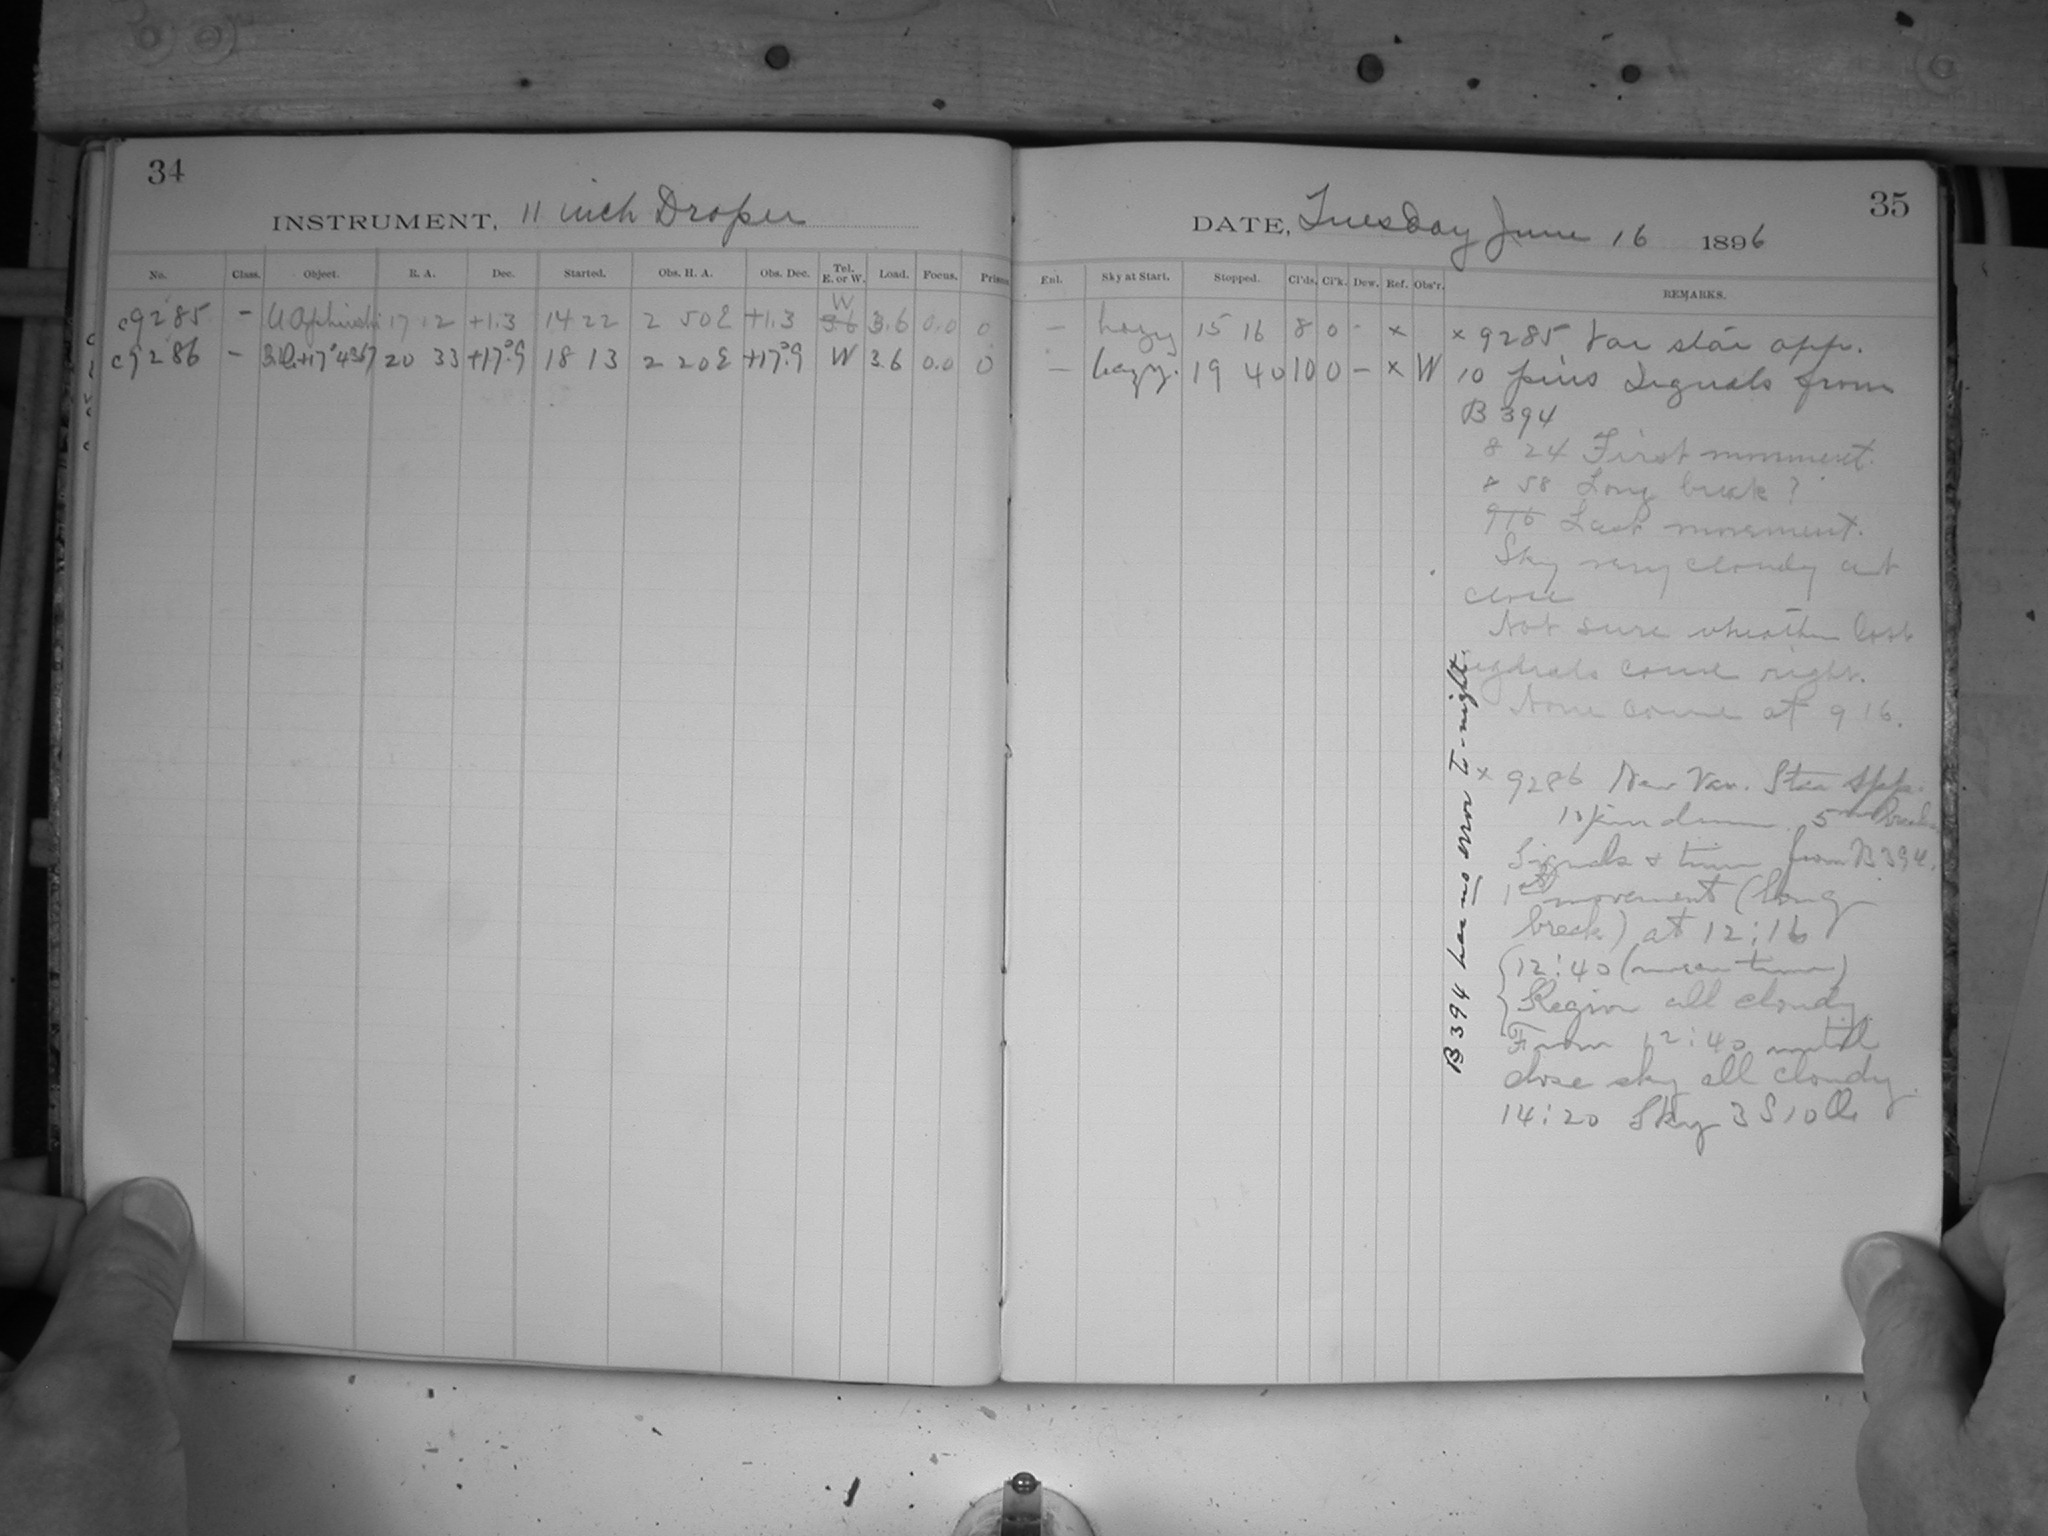 34
INSTRUMENT, 11 inch Draper
No. Class. Object. R. A. Dec. Started. Obs. H. A. Obs. Dec. Tel. E. or W. Load. Focus. Prism
c9285 - U Ophiuchi 17 12 +1.3 14 22 2 50E +1.3 W 3.6 0.0 0
c9286 - +17°4367 20 33 +17°.9 18 13 2 20E +17°.9 W 3.6 0.0 0
35
DATE, Tuesday June 16 1896
Enl. Sky at Start. Stopped. Cl'ds. Cl'k. Dew. Ref. Obs'r. REMARKS.
- hazy 15 16 8 0 - x x 9285 Var star app.
- hazy. 19 40 10 0 - x W 10 pins Signals from
B 394
8 24 First movement.
8 58 Long break?
916 Last movement.
Sky very cloudy at
close
Not sure whether last
signals come right.
None come at 9 16.
x 9286 New Var. Star App.
10 pin drum. 5 m breaks
Signals & time from B 394.
1st movement (long
break) at 12:16
12:40 (mean time)
Region all cloudy.
From 12:40 until
close sky all cloudy.
14:20 Sky 3 S 10
B 394 has no error to-night.